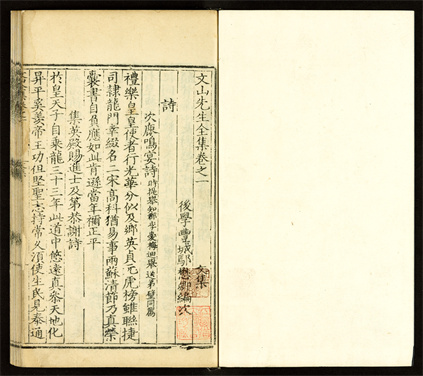 文山先生全集卷之一
後學豐城鄢懋卿編次
文集
詩
次鹿鳴宴詩
禮樂皇皇使者行光華分似及鄉英貞元虎榜雖聯捷
司隸龍門幸綴名二宋高科猶易事兩蘇清節乃真榮
囊書自負應如此肯遜當年禰正平
集英殿賜進士及第恭謝詩
於皇天子自乘龍三十三年此道中悠遠直參天地化
昇平奚羨帝王功但堅聖志持常久須使生民見泰通